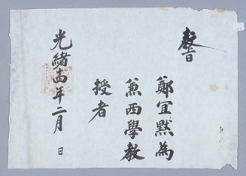 鄭宜默為
兼西學教
授者
光緒十四年二月 日